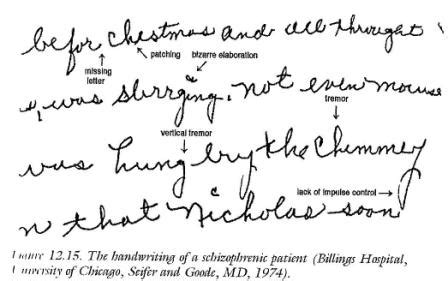 befor chestmas and all throught
missing letter
patching
bizarre elaboration
was slurrging. not even mouse
tremor
vertical tremor
was hung bry the Chimmey
lack of impulse control
n that Nicholas soon
Figure 12.15. The handwriting of a schizophrenic patient (Billings Hospital,
University of Chicago, Seifer and Goode, MD, 1974).